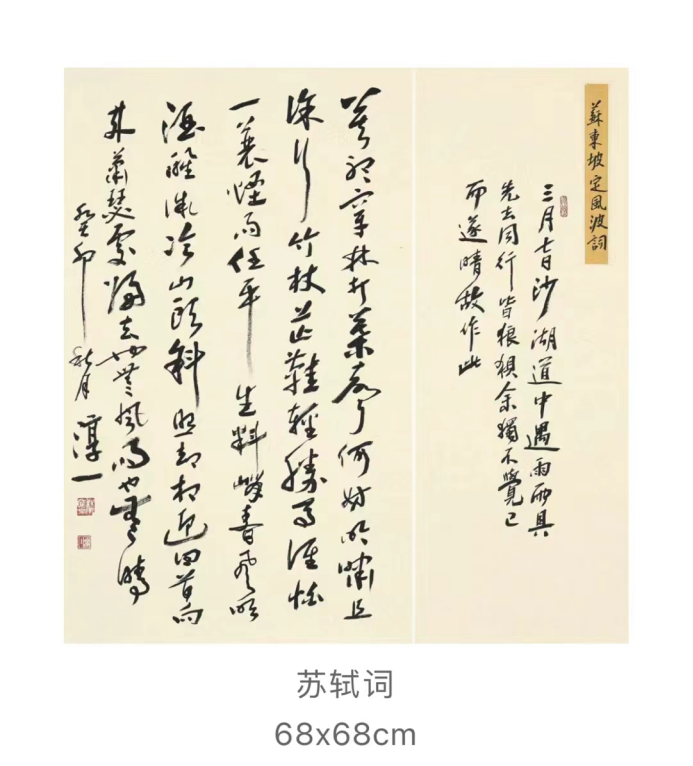 蘇東坡定風波詞
三月七日沙湖道中遇雨雨具
先去同行皆狼狽余獨不覺已
而遂晴故作此
莫聽穿林打葉聲何妨吟嘯且
徐行竹杖芒鞋輕勝馬誰怕
一蓑煙雨任平生料峭春風吹
酒醒微冷山頭斜照却相迎回首向
來蕭瑟處歸去也無風雨也無晴
癸卯秋月
淳一
苏轼词
68x68cm